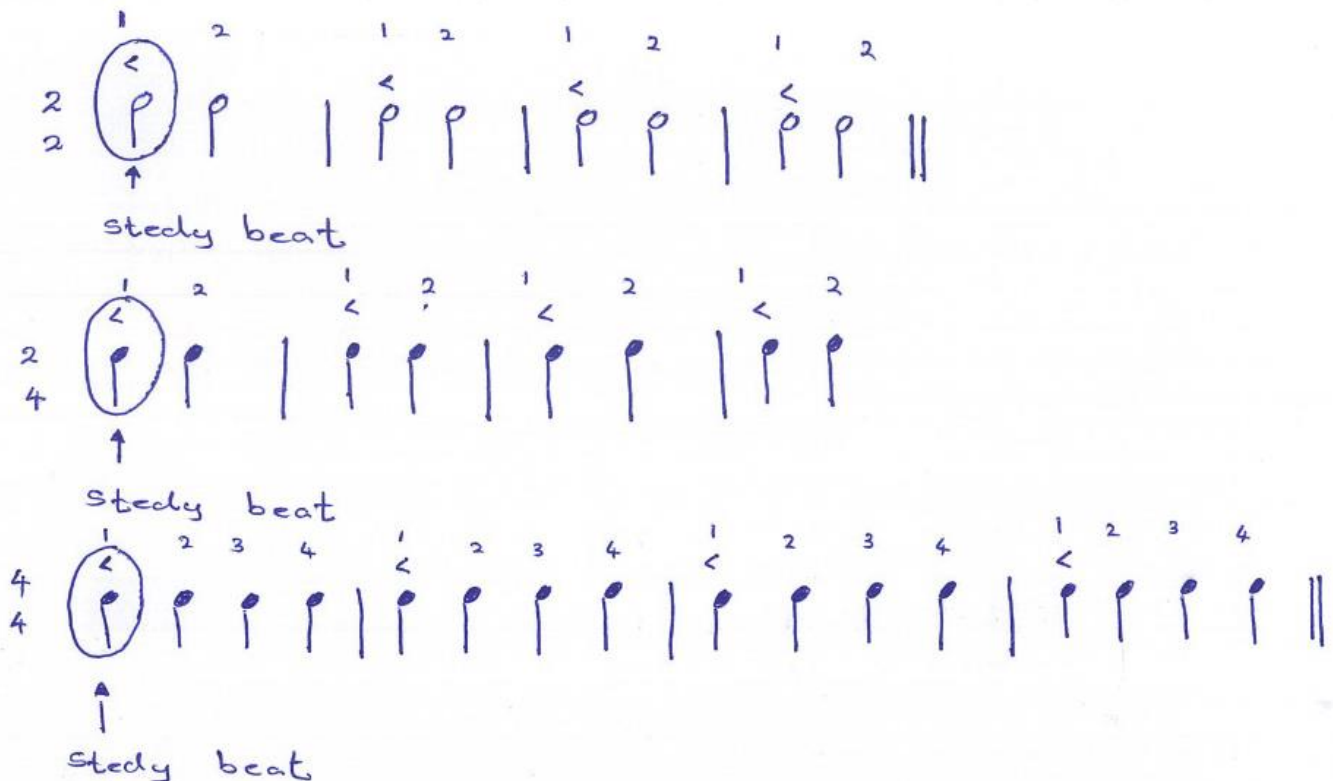 1 2 1 2 1 2 1 2
< < < <
2
2
stedy beat
1 2 1 2 1 2 1 2
< < < <
2
4
stedy beat
1 2 3 4 1 2 3 4 1 2 3 4 1 2 3 4
< < < <
4
4
stedy beat